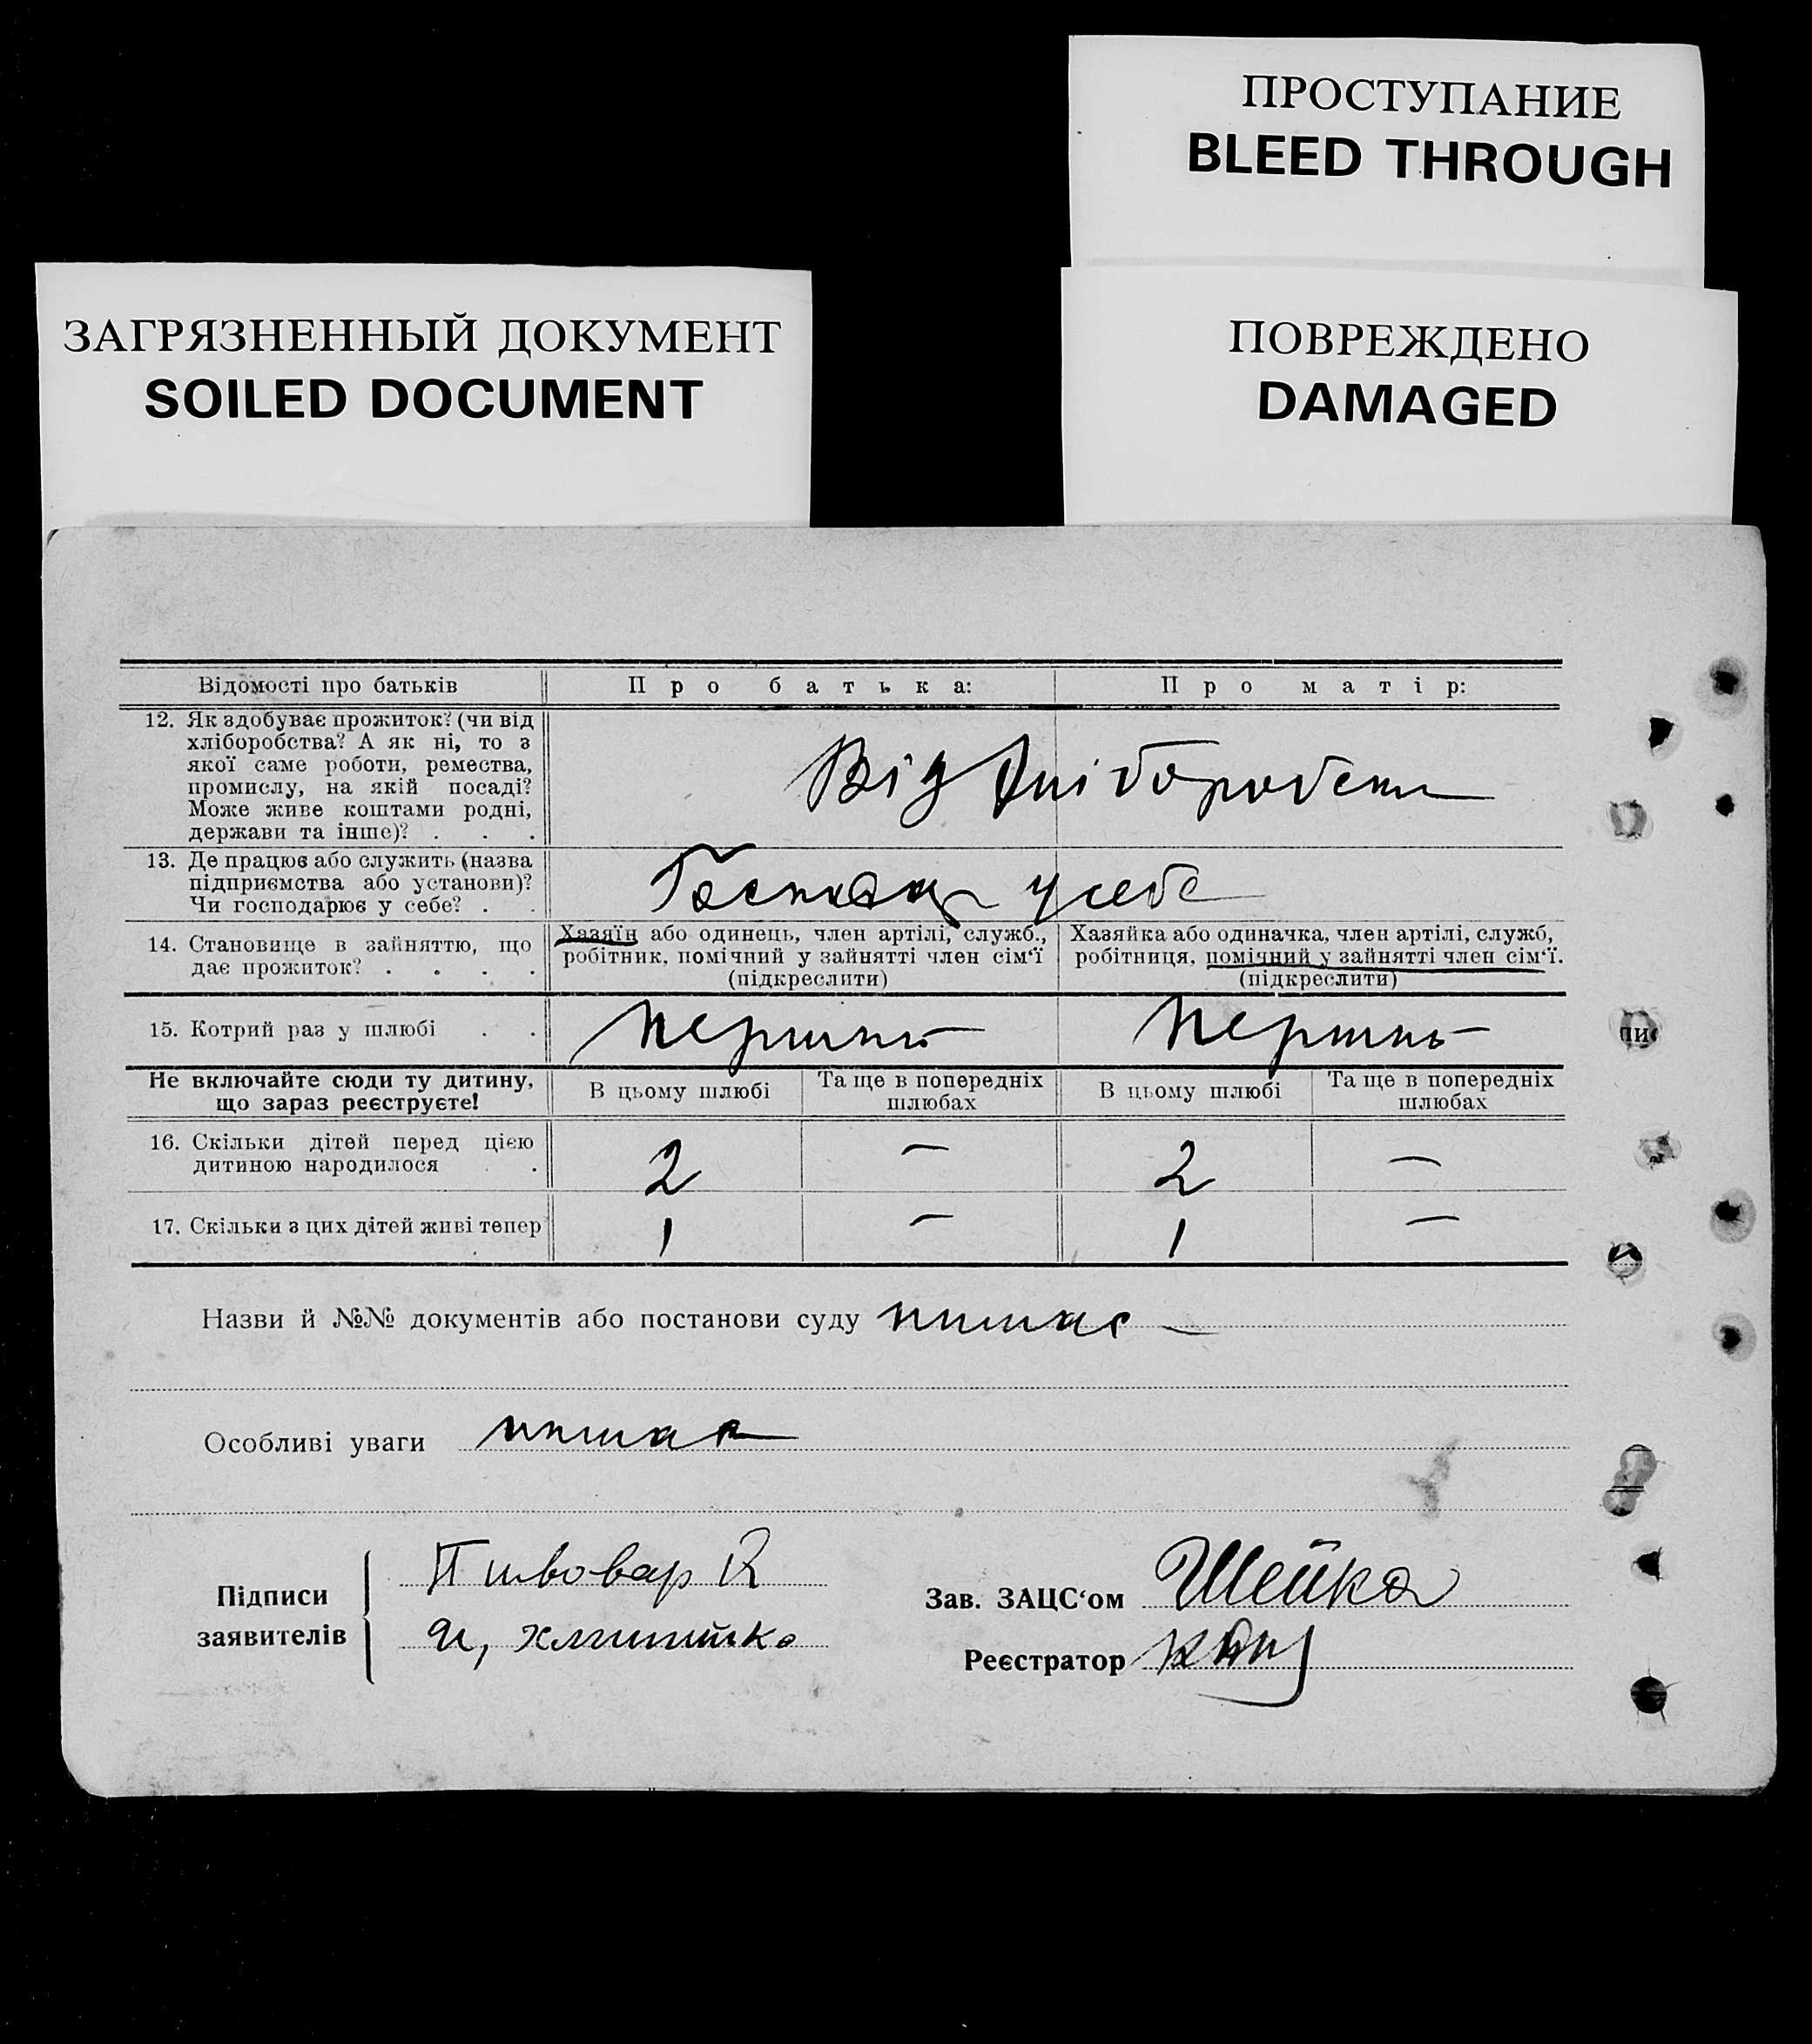 ПРОСТУПАНИЕ
BLEED THROUGH
ЗАГРЯЗНЕННЫЙ ДОКУМЕНТ
SOILED DOCUMENT
ПОВРЕЖДЕНО
DAMAGED
Відомості про батьків Про батька: Про матір:
12. Як здобуває прожиток? (чи від
хліборобства? А як ні, то з
якої саме роботи, ремества,
промислу, на якій посаді?
Може живе коштами родні,
держави та інше)? . . .
Від хліборобства
13. Де працює або служить (назва
підприємства або установи)?
Чи господарює у себе? . .
у себе
14. Становище в зайняттю, що
дає прожиток? . . . .
Хазяїн або одинець, член артілі, служб.,
робітник, помічний у зайнятті член сім'ї
(підкреслити)
Хазяйка або одиначка, член артілі, служб,
робітниця, помічний у зайнятті член сім'ї.
(підкреслити)
15. Котрий раз у шлюбі . . перший перший
Не включайте сюди ту дитину,
що зараз реєструєте!
В цьому шлюбі Та ще в попередніх
шлюбах
В цьому шлюбі Та ще в попередніх
шлюбах
16. Скільки дітей перед цією
дитиною народилося . .
2 — 2 —
17. Скільки з цих дітей живі тепер 1 — 1 —
Назви й №№ документів або постанови суду немає
Особливі уваги немає
Підписи
заявителів
Пивовар
Зав. ЗАЦС'ом Шейко
Реєстратор